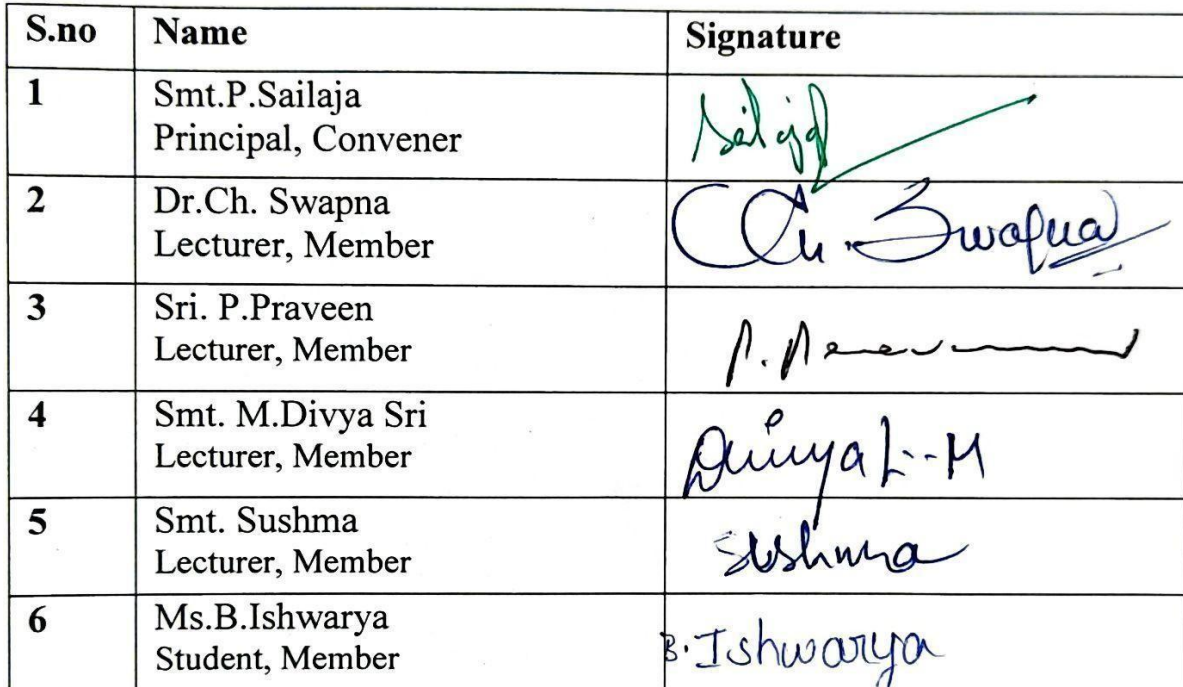 S.no Name Signature
1 Smt.P.Sailaja
Principal, Convener
Sailaja
2 Dr.Ch. Swapna
Lecturer, Member
Ch. Swapna
3 Sri. P.Praveen
Lecturer, Member
P.
4 Smt. M.Divya Sri
Lecturer, Member
Divya
5 Smt. Sushma
Lecturer, Member
Sushma
6 Ms.B.Ishwarya
Student, Member
B. Ishwarya